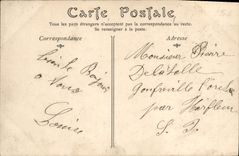 Carte Postale
Tous les pays étrangers n'acceptent pas la correspondance au recto.
Se renseigner à la poste.
Correspondance
Adresse
Monsieur Pierre
Delatolle
Gonfreville l'Orcher
par Harfleur
S. I.
à vous
Louise